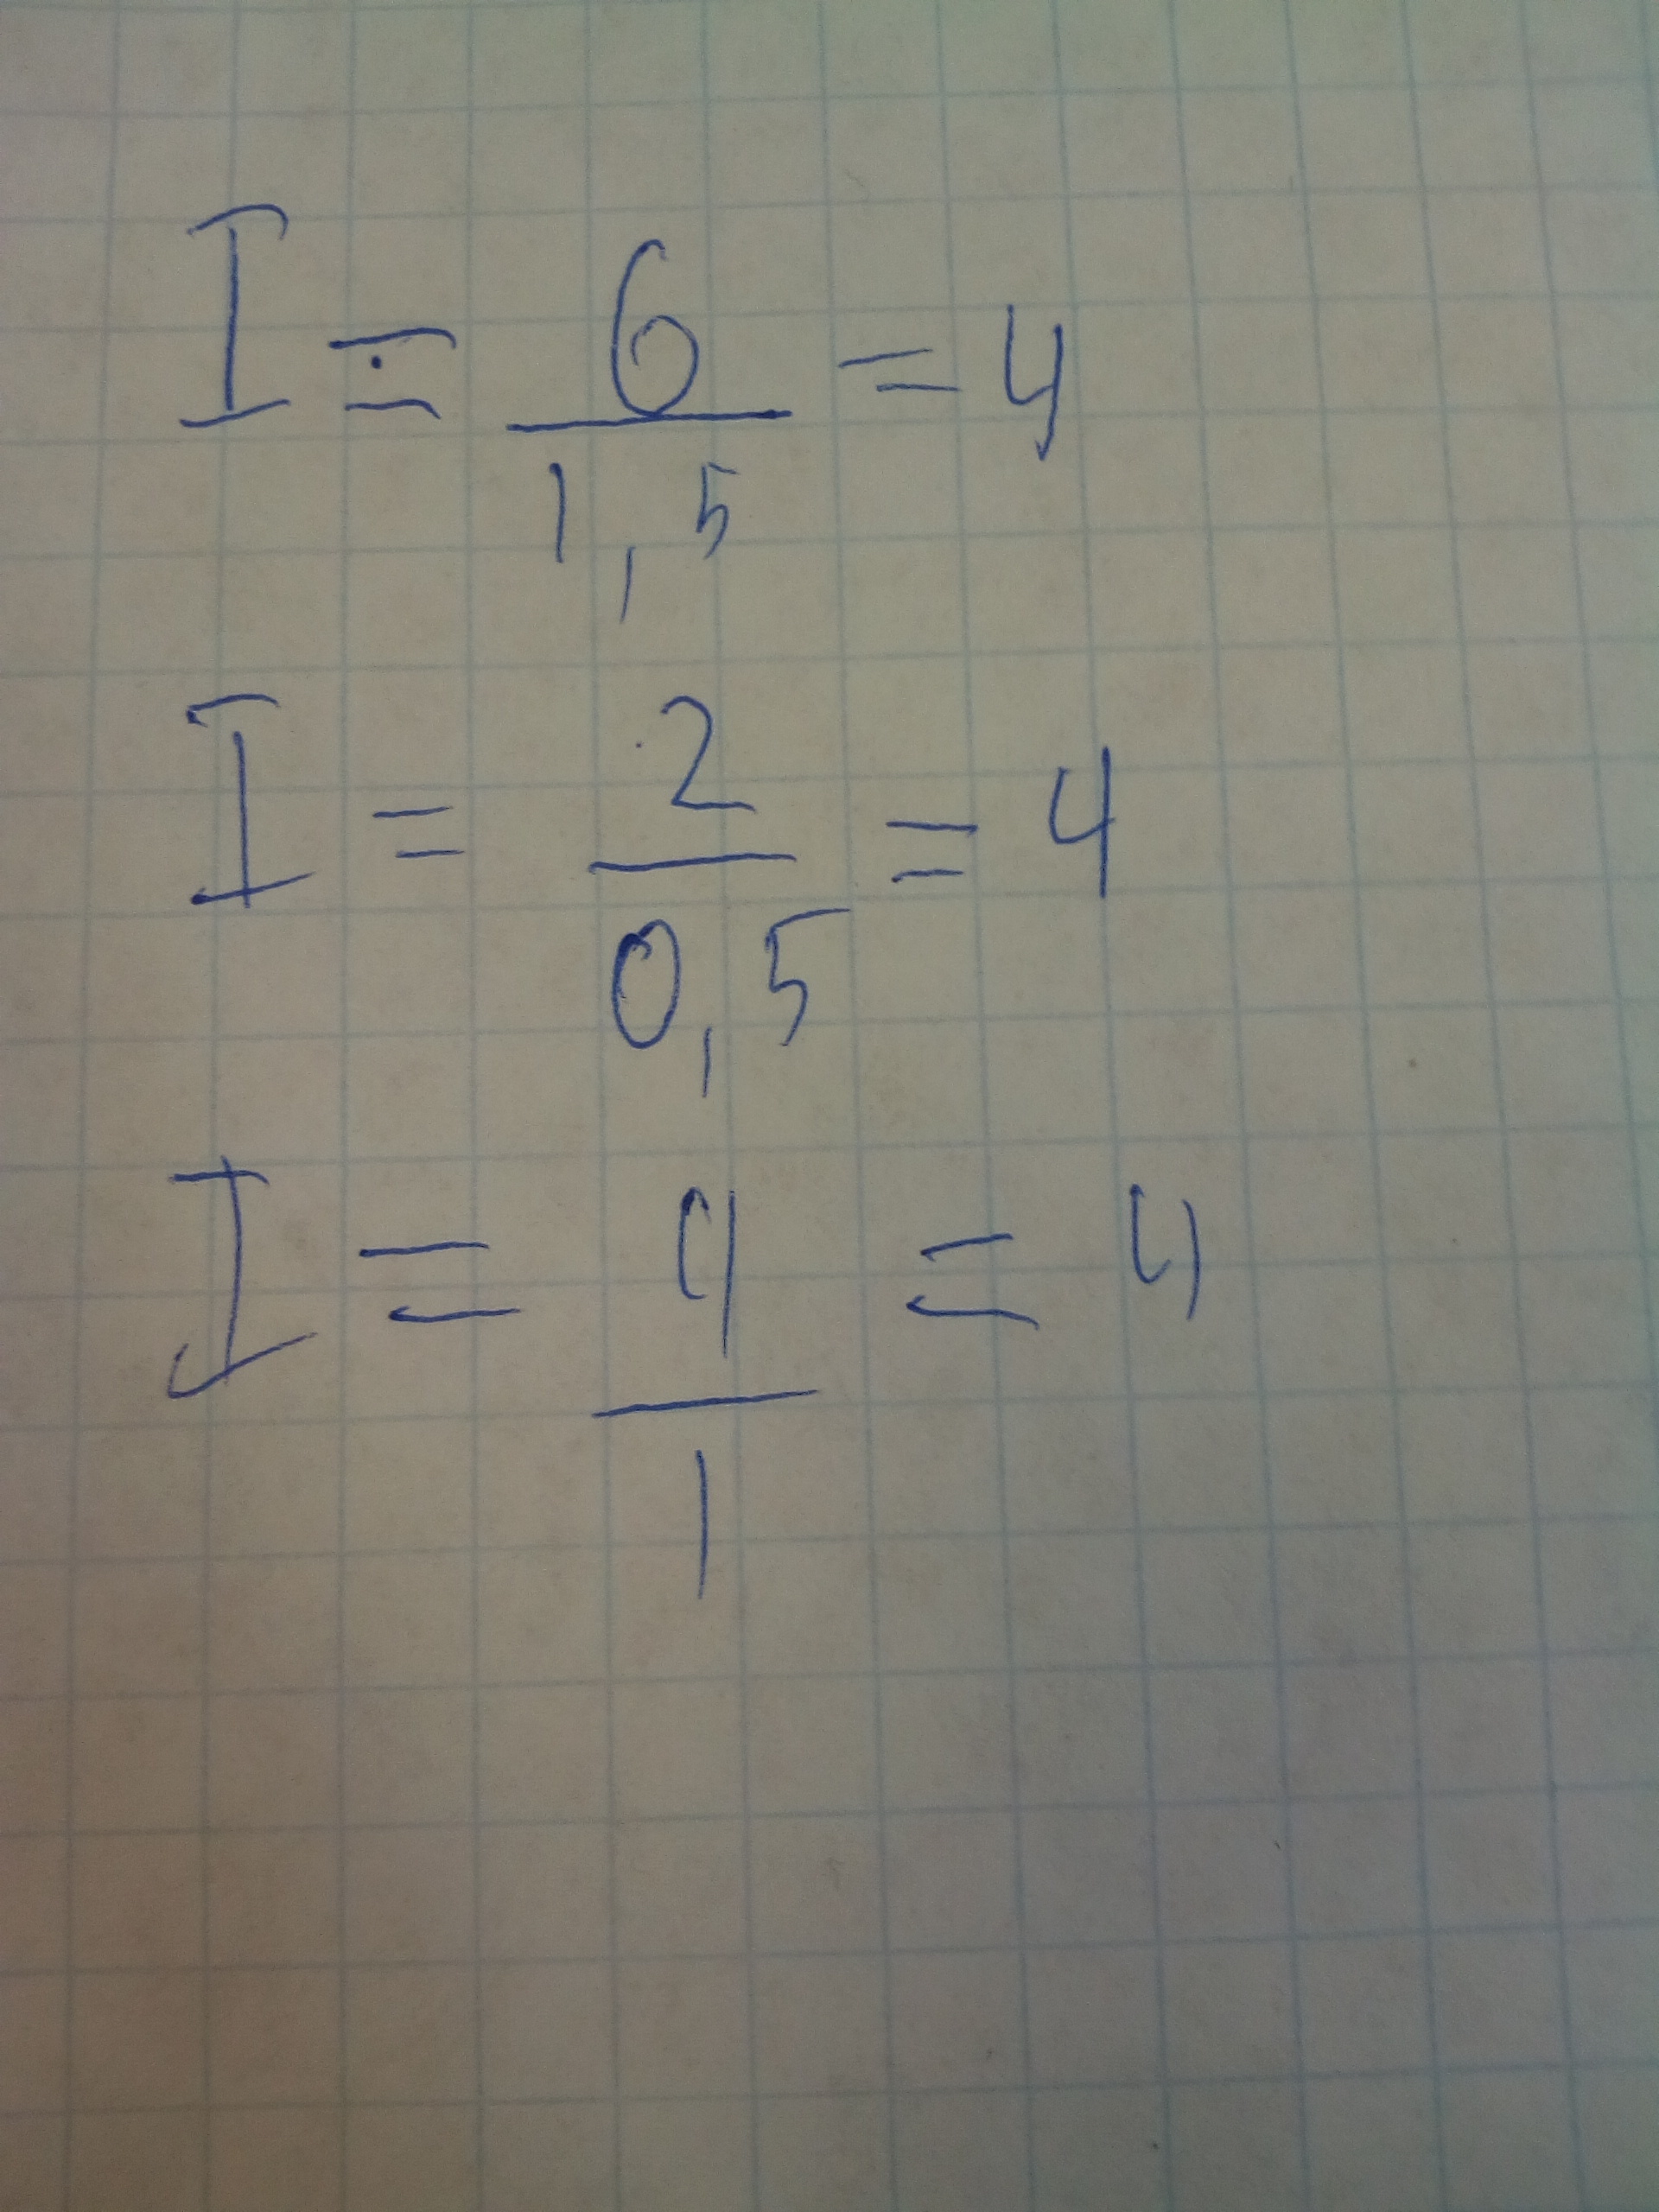 I = 6/1,5 = 4
I = 2/0,5 = 4
I = 4/1 = 4